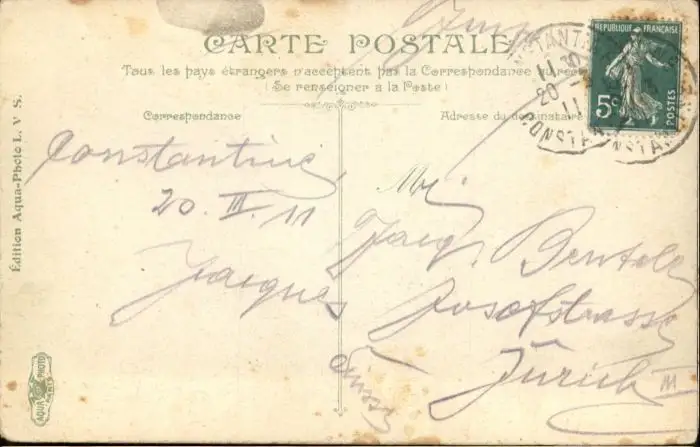 CARTE POSTALE
Tous les pays étrangers n'acceptent pas la Correspondance au recto
(Se renseigner à la Poste)
Correspondance
Adresse du destinataire
RÉPUBLIQUE FRANÇAISE
5c
POSTES
11
20
11
CONSTANTINE
Édition Aqua-Photo L. V. S.
AQUA PHOTO
Constantine,
20. III. 11
Jacques
Mr
Jacq.
Josefstrasse
Zürich III
Suisse